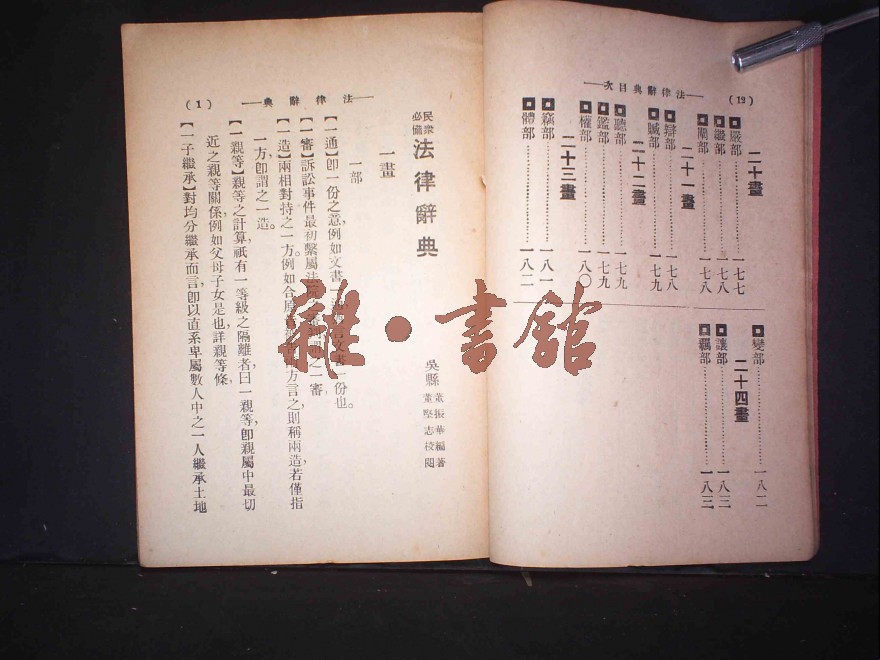 (19) ——法律辭典目次——
二十畫
嚴部……一七七
繼部……一七八
闡部……一七八
二十一畫
辯部……一七八
贓部……一七九
二十二畫
聽部……一七九
鑑部……一七九
權部……一八〇
二十三畫
竊部……一八一
體部……一八二
變部……一八二
二十四畫
讓部……一八三
羈部……一八三
——法律辭典—— (1)
民衆必備 法律辭典
吳縣 董振華編著
董堅志校閱
一畫
一部
【一通】卽一份之意，例如文書一份也。
【一審】訴訟事件最初繫屬法院一審
【一造】兩相對持之一方。例如合原方言之，則稱兩造，若僅指
一方，卽謂之一造。
【一親等】親等之計算，祇有一等級之隔離者，曰一親等，卽親屬中最切
近之親等關係，例如父母子女是也，詳親等條，
【一子繼承】對均分繼承而言，卽以直系卑屬數人中之一人繼承土地
雜·書館